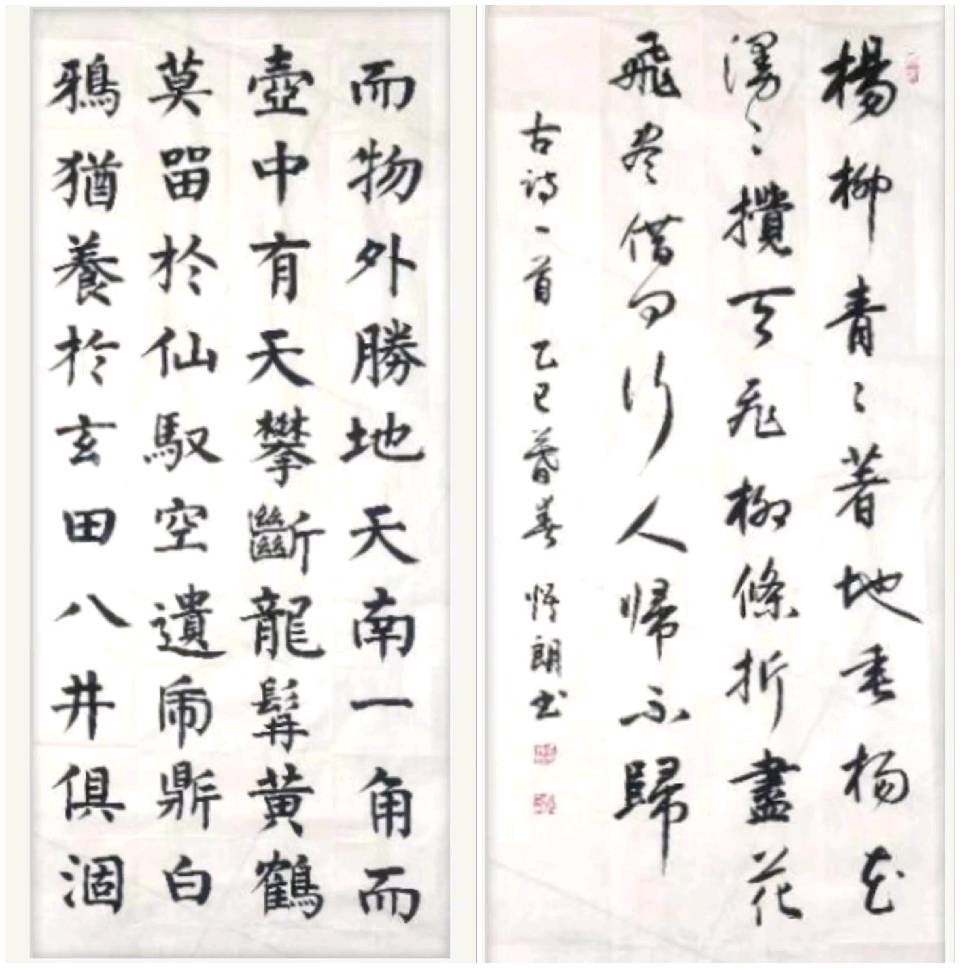 而物外勝地天南一角而
壺中有天攀斷龍髯黃鶴
莫㽞於仙馭空遺乕鼎白
鴉猶養於玄田八井俱涸
楊柳青〻著地垂杨花
漫〻攪天飛柳條折盡花
飛尽借问行人帰不歸
古詩一首 乙巳暮春 悟朗书